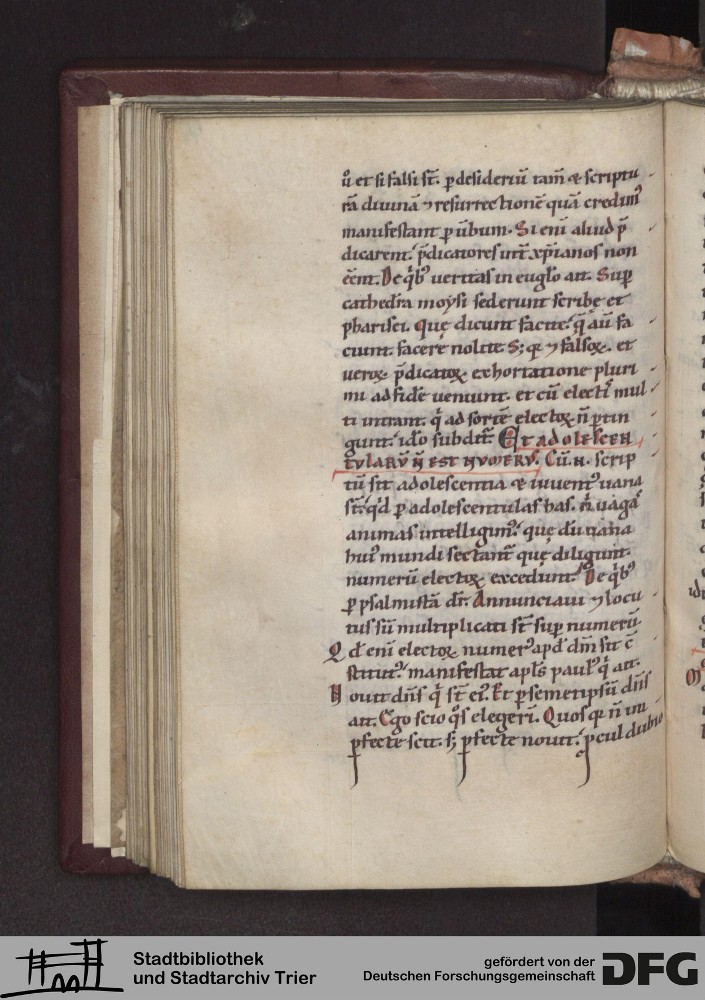 u̾ et si falsi st̄. ꝑ desideriū tam̄ & scriptu
rā diuinā ⁊ resurrectionē quā credim᷒
manifestant ꝑ u̾bum. Si eni aliud p̄
dicarent. p̄dicatores utıꝗ xp̄ianos non
ēent. De qͥb᷒ ueritas in eugl̄o ait. Suꝑ
cathedra moysi sederunt scribę et
pharisei. Quę dicunt facite. q̄ aū fa
ciunt facere nolite S; qꝫ ⁊ falsoꝝ. et
ueroꝝ p̄dicatoꝝ exhortatione pluri
mi ad fidē ueniunt. et cū electı̄ mul
ti intrant. qͥ ad sortē electoꝝ n̄ ꝑtin
gunt. ido subdit̄. Et adolescen
tularū n̄ est numerus. Cū.n. scrip
tū sit adolescentia & iuuent᷒ uana
st̄. qͥd ꝑ adolescentulas has. n̄ uagas
animas intelligim᷒. quę dū uana
hui᷒ mundi sectant᷒ quę diligunt.
numerū electoꝝ excedunt. De qͥb᷒
ꝑ psalmistā dr̄. Annunciaui ⁊ locu
tus sū multiplicati st̄ suꝑ numerū.
Qd̄ eni electoꝝ numer᷒ apd̄ dm̄ sit c̄
stitut᷒. manifestat apl̄s paul᷒ qͥ ait.
Nouit dn̄s qͥ st̄ ei᷒. Et ꝑ semetipsū dn̄s
ait. Ego scio qͦs elegeri. Quos qꝫ n̄
ꝑfecte scit. s; ꝑfecte nouit. ꝓcul dubio
Stadtbibliothek
und Stadtarchiv Trier
gefördert von der
Deutschen Forschungsgemeinschaft
DFG